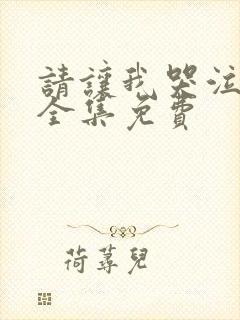 請讓我哭泣
全集免費
荷蕁兒